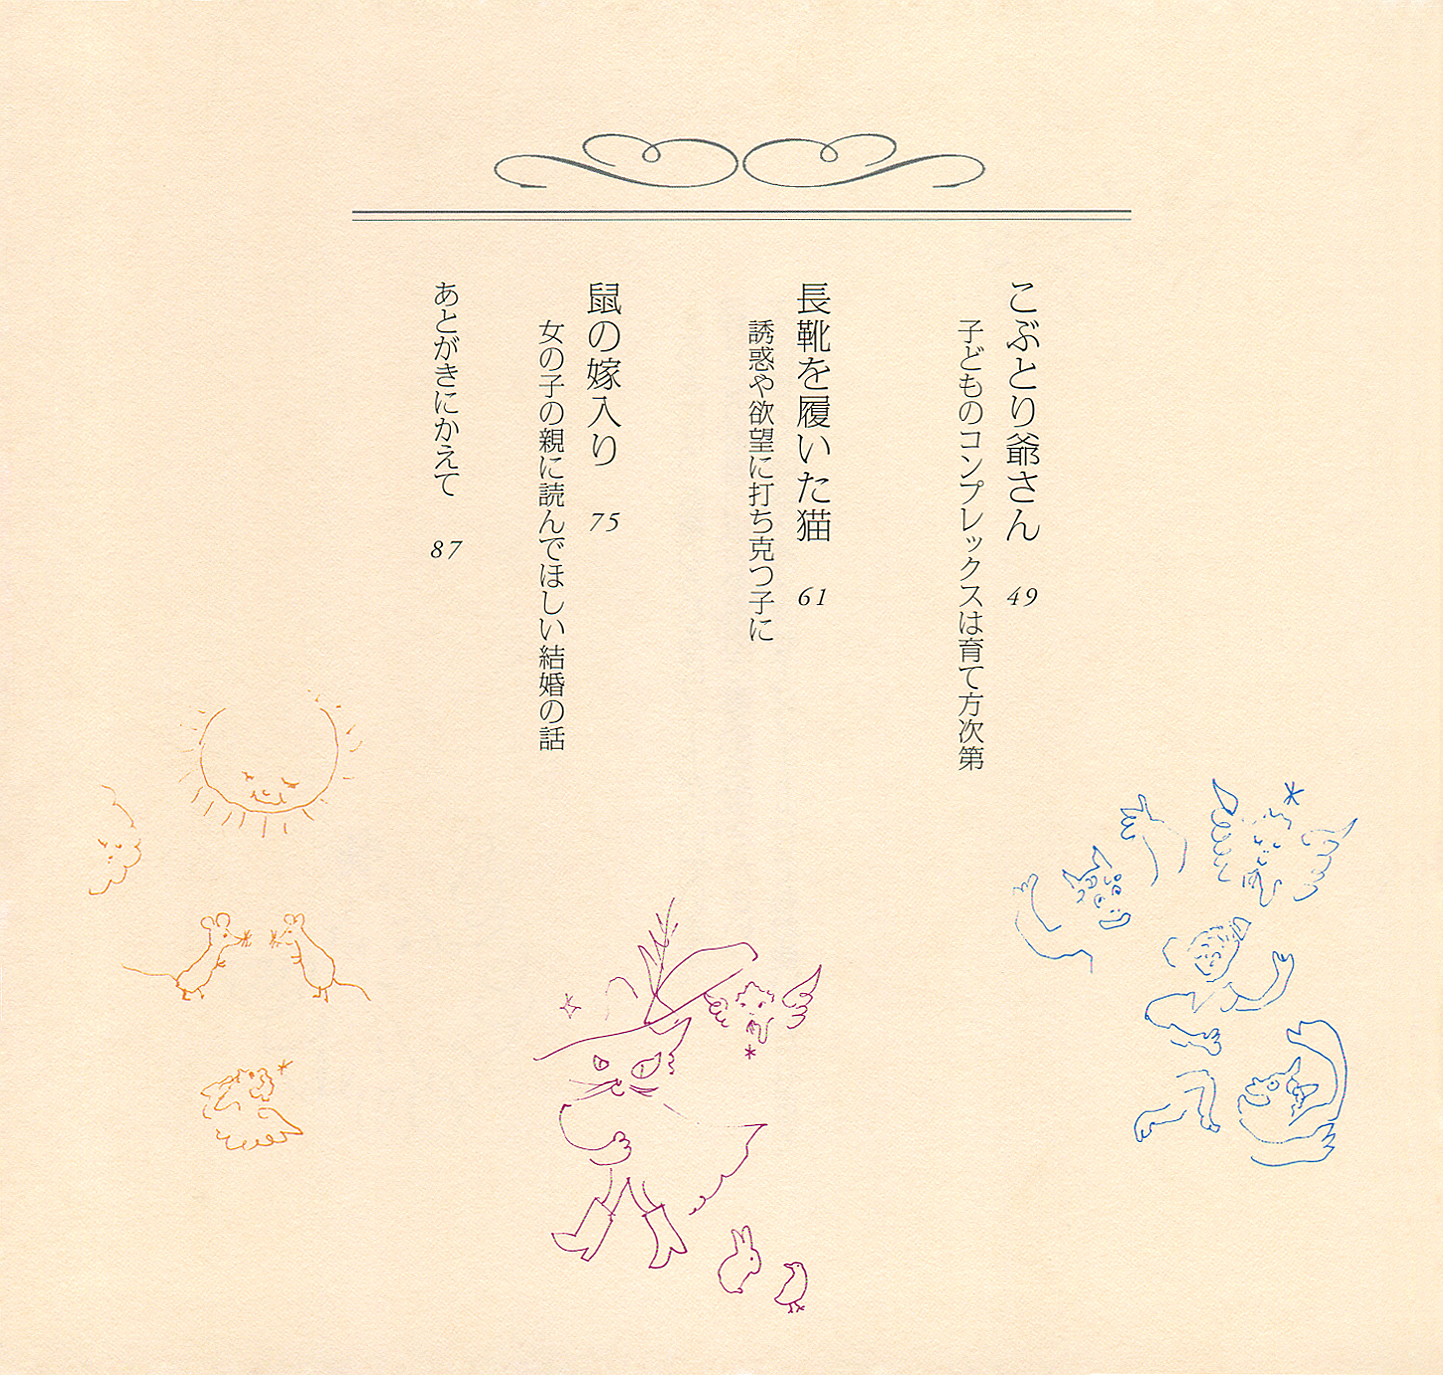 こぶとり爺さん 49
子どものコンプレックスは育て方次第
長靴を履いた猫 61
誘惑や欲望に打ち克つ子に
鼠の嫁入り 75
女の子の親に読んでほしい結婚の話
あとがきにかえて 87